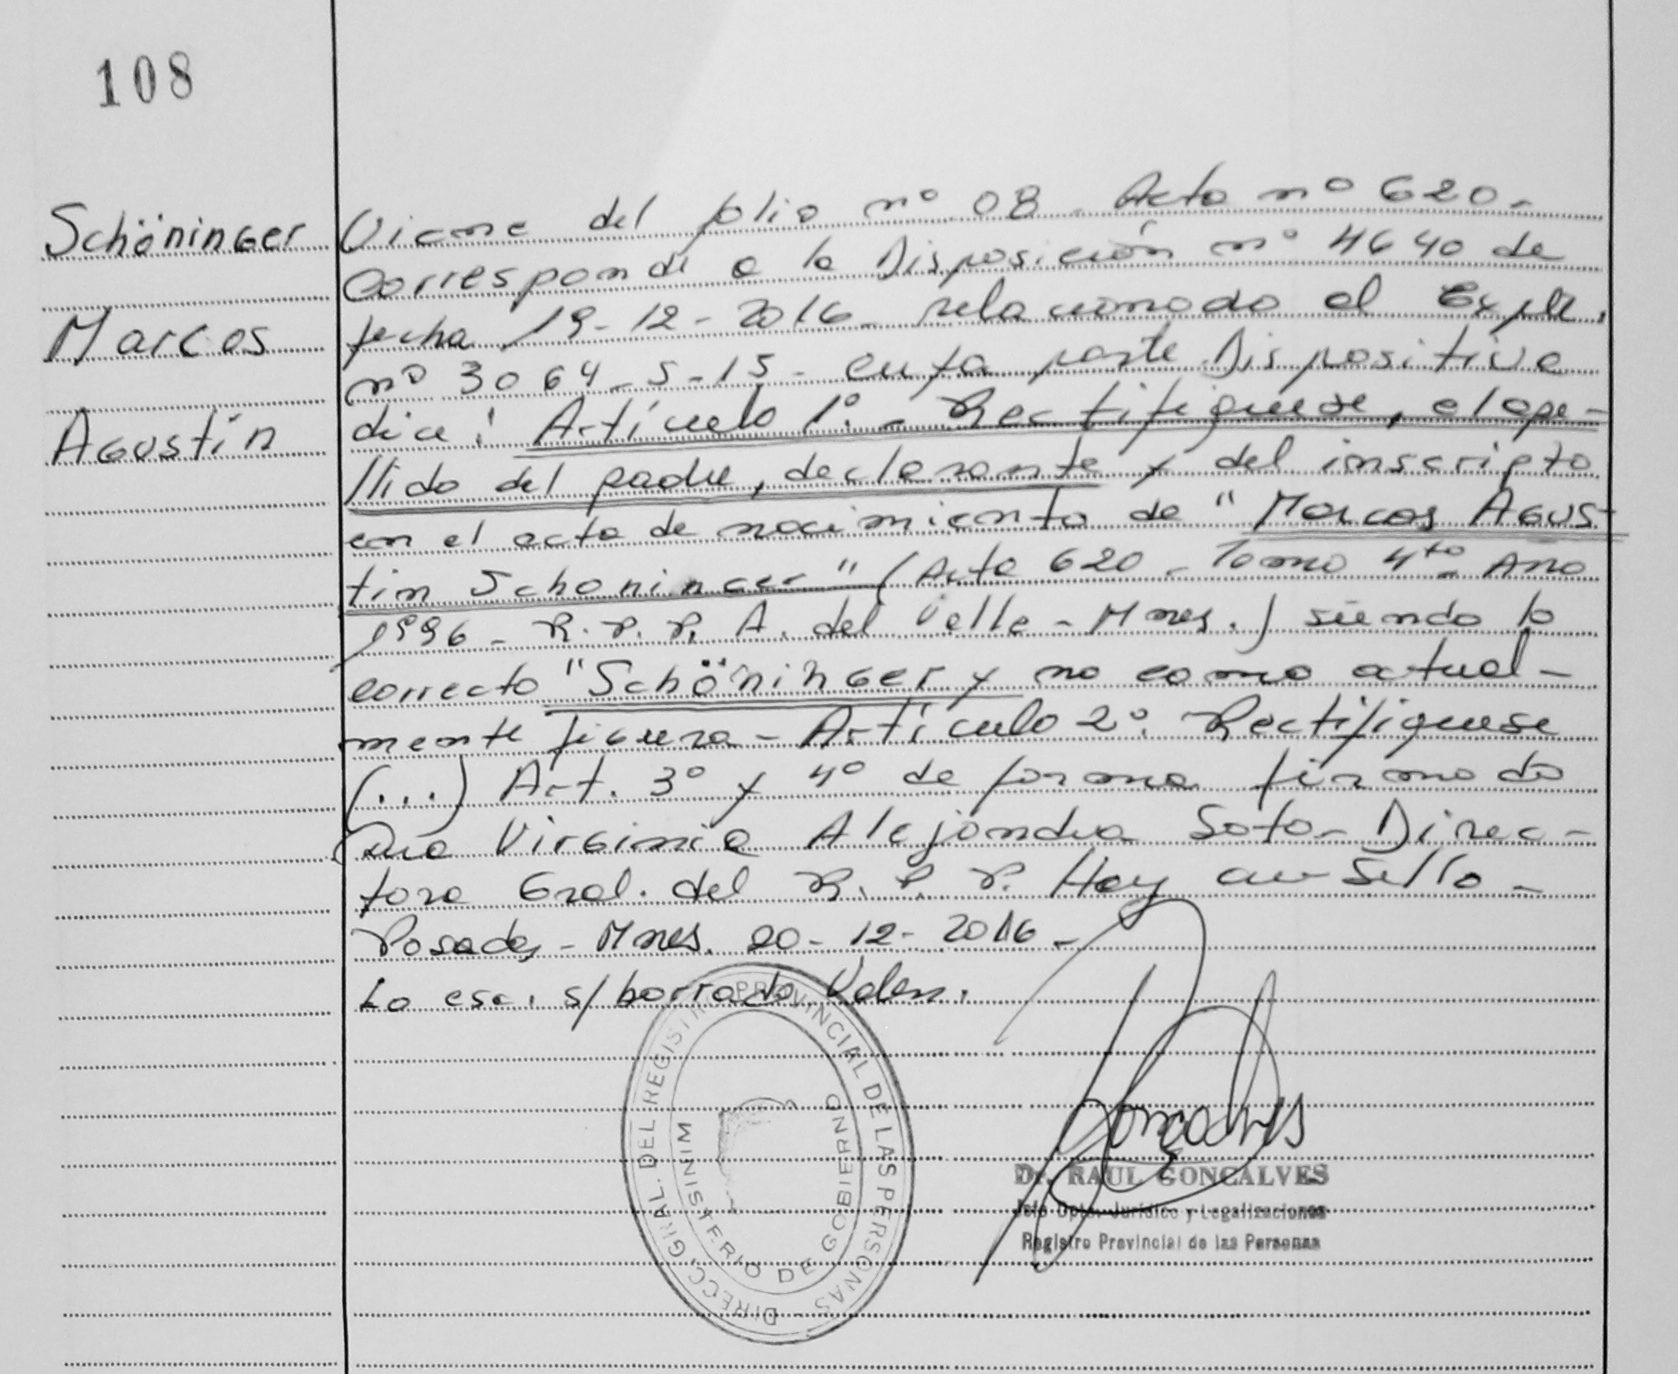 108
Schöninger
Marcos
Agustín
Viene del folio nº 08 - Acta nº 620 -
corresponde a la Disposición nº 4640 de
fecha 19-12-2016 - relacionado al Expte.
nº 3064-S-15 - cuya parte Dispositiva
dice: Artículo 1º - Rectifiquese, el ape-
llido del padre, declarante y del inscripto
en el acta de nacimiento de "Marcos Agus-
tin Schoninger" (Acta 620 - Tomo 4to - Año
1996 - R.P.P. A. del Valle - Mnes.) siendo lo
correcto "Schöninger y no como actual-
mente figura - Artículo 2º: Rectifiquese
(...) Art. 3º y 4º de forma firmado
Dra Virginia Alejandra Soto - Direc-
tora Gral. del R.P.P. Hay un Sello -
Posadas - Mnes. 20-12-2016 -
Lo esc. s/borrado Valen.
DIRECC. GRAL. DEL REGISTRO PROVINCIAL DE LAS PERSONAS
MINISTERIO DE GOBIERNO
Goncalves
Dr. RAUL GONCALVES
Jefe Dpto. Jurídico y Legalizaciones
Registro Provincial de las Personas